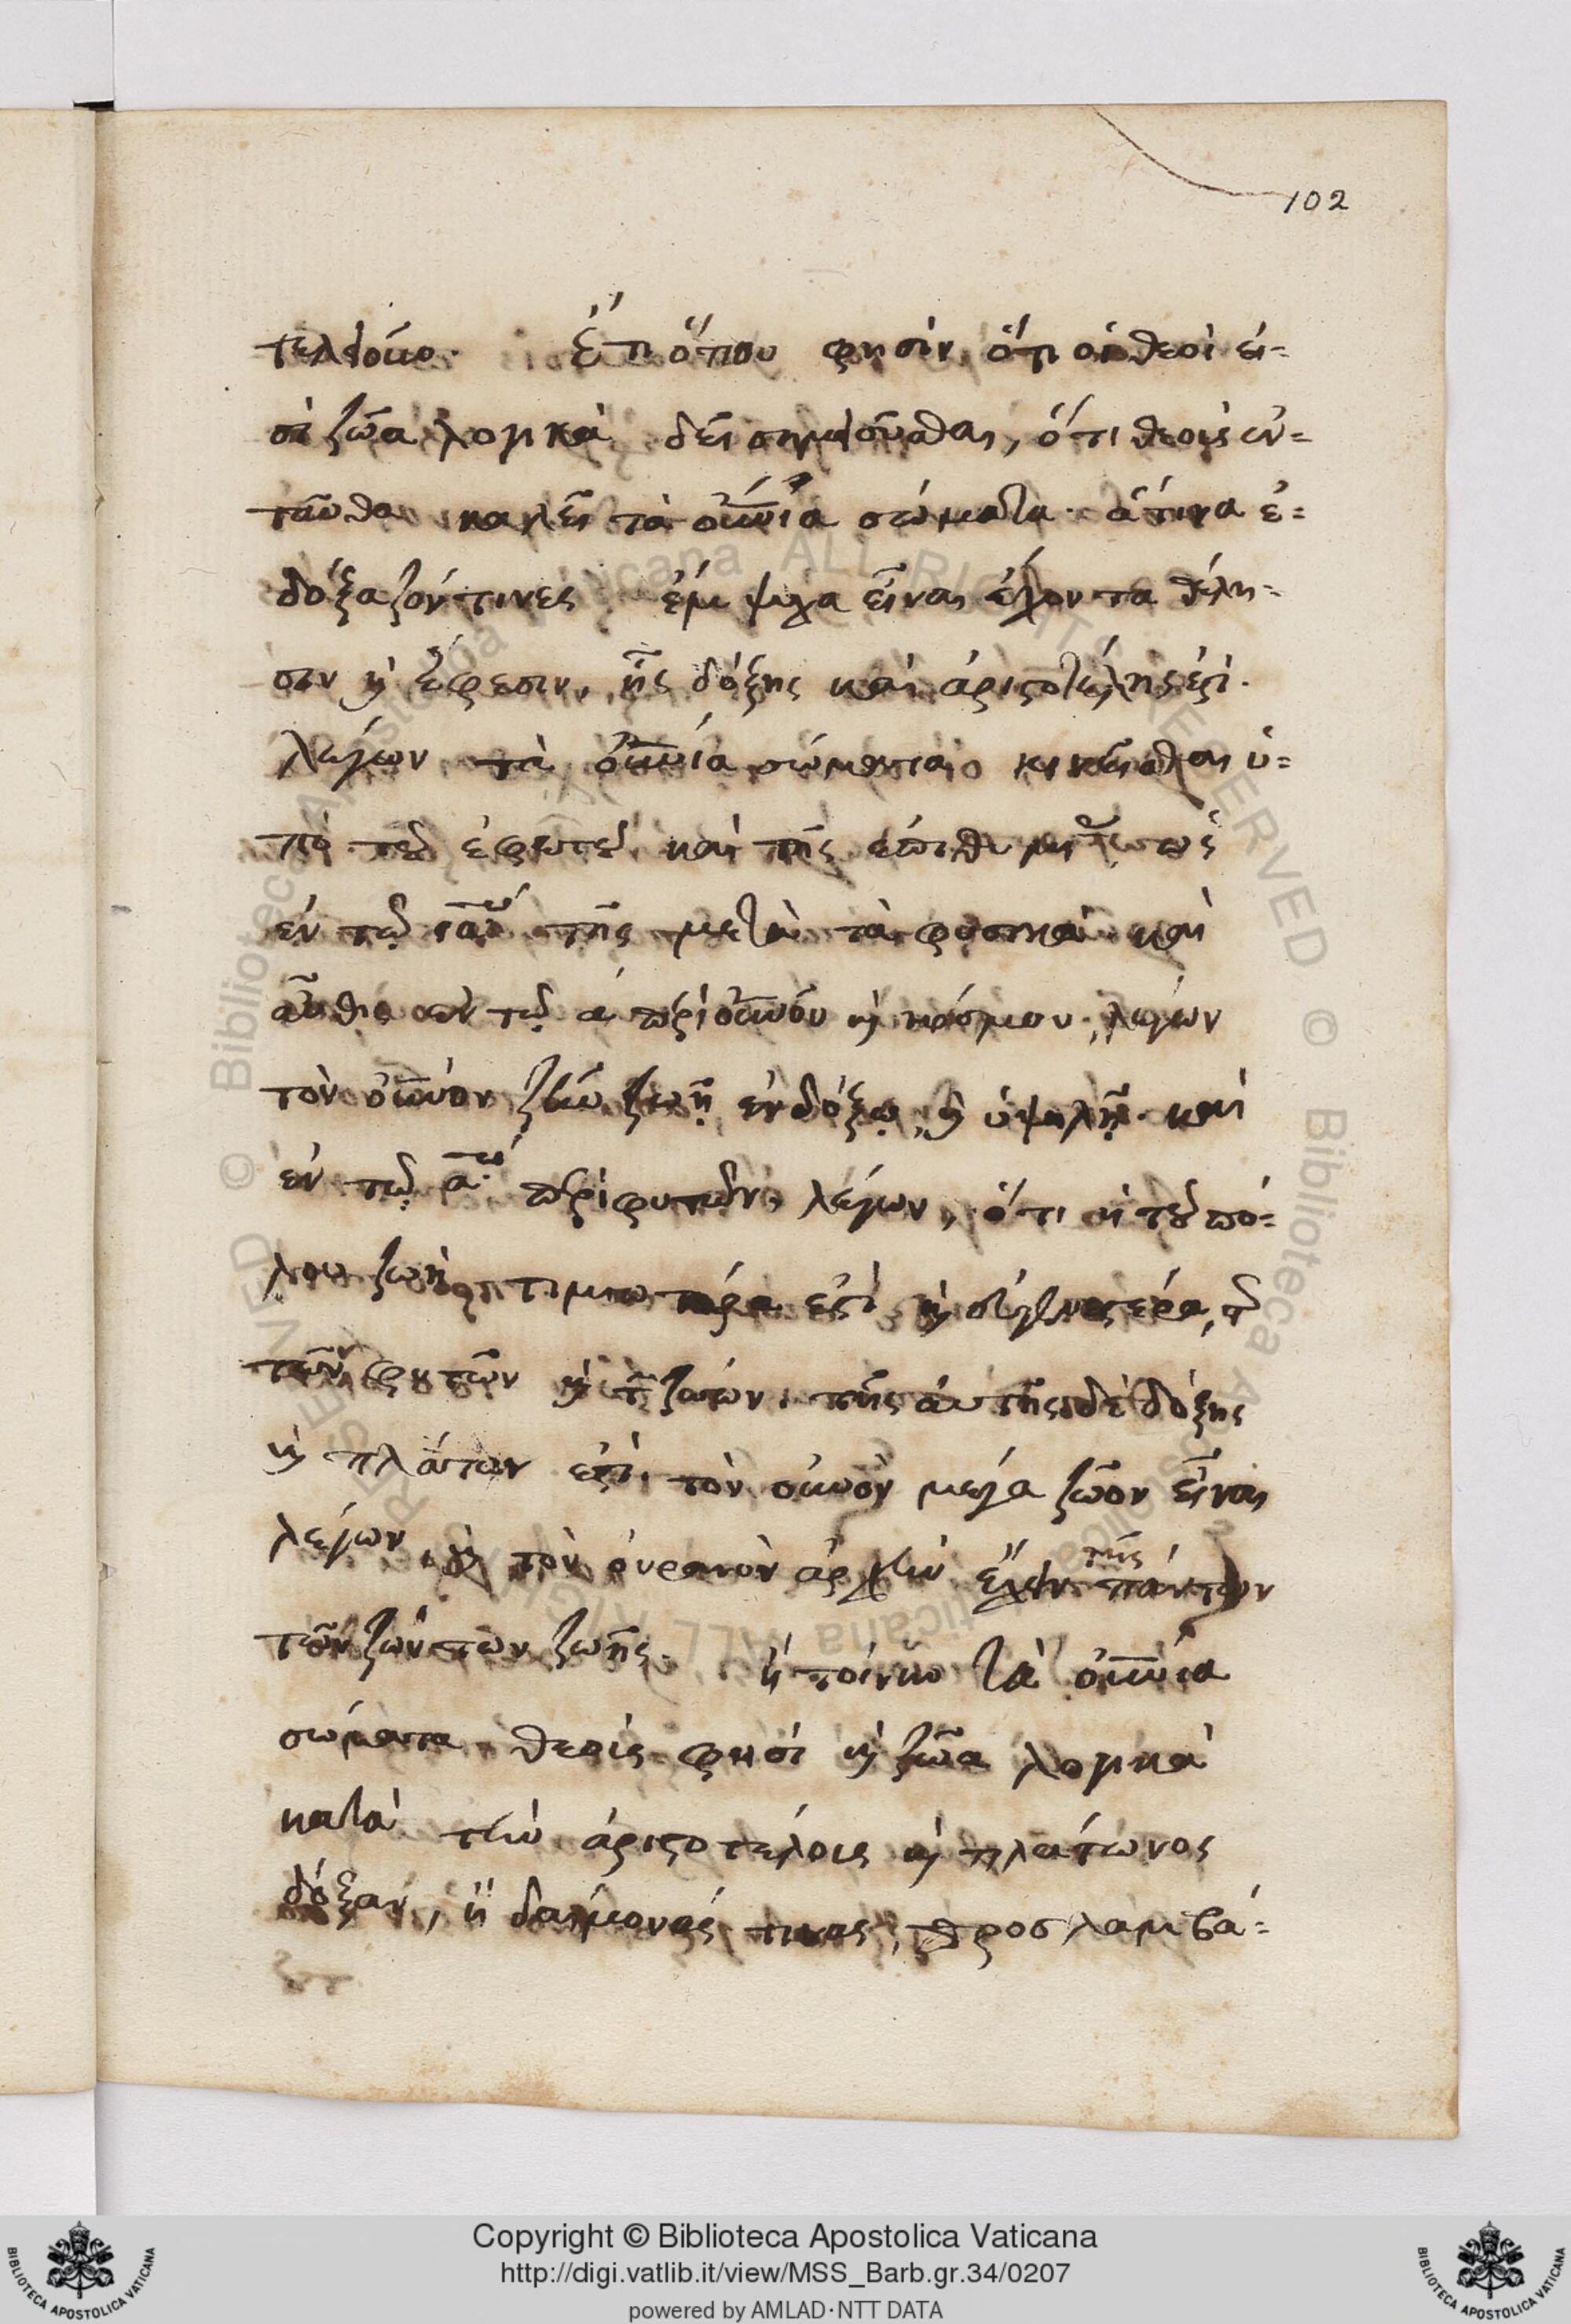 102
ἔτι ὅπου φησὶν ὅτι οἱ θεοὶ εἰ=
σὶ ζῶα λογικὰ δεῖ σημειοῦσθαι, ὅτι θεοὺς ἐν=
ταῦθα καλεῖ τὰ οὐνία σώματα· ἅτινα ἐ=
δόξαζόν τινες ἔμψυχα εἶναι ἔχοντα θέλη=
σιν κὶ ἔφεσιν, ἧς δόξης καὶ ἀριστοτέλης ἐστὶ·
λέγων τὰ οὐνία σώματα κινεῖσθαι ὑ=
πὸ τοῦ ἐφετοῦ καὶ τῆς
ἐν τῷ τῆς μετὰ τὰ φυσικὰ· καὶ
αὖθις ἐν τῷ περὶ οὐνοῦ κὶ κόσμου· λέγων
τὸν οὐνὸν ζῆν ζωῇ ἐνδόξῳ, κὶ ὑψηλῇ· καὶ
ἐν τῷ α῾ῳ περὶ φυτῶν· λέγων, ὅτι ἡ τοῦ πό=
λου ζωὴ τιμιωτέρα ἐστὶ κὶ
τῶν φυτῶν κὶ τ ζώων· τῆς αὐτῆς δὲ δόξης
κὶ πλάτων ἐστὶ, τὸν οὐνὸν μέγα ζῶον εἶναι
λέγων, κὶ τὸν οὐρανὸν ἀρχὴν ἔχειν τῆς πάντων
τῶν ζώντων ζωῆς. ἢ τοίνυν τὰ οὐνία
σώματα θεοὺς φησὶ κὶ ζῶα λογικὰ
κατὰ τὴν ἀριστοτέλους κὶ πλάτωνος
δόξαν, ἢ δαίμονάς τινας, προσλαμβά=
Copyright © Biblioteca Apostolica Vaticana
http://digi.vatlib.it/view/MSS_Barb.gr.34/0207
powered by AMLAD·NTT DATA